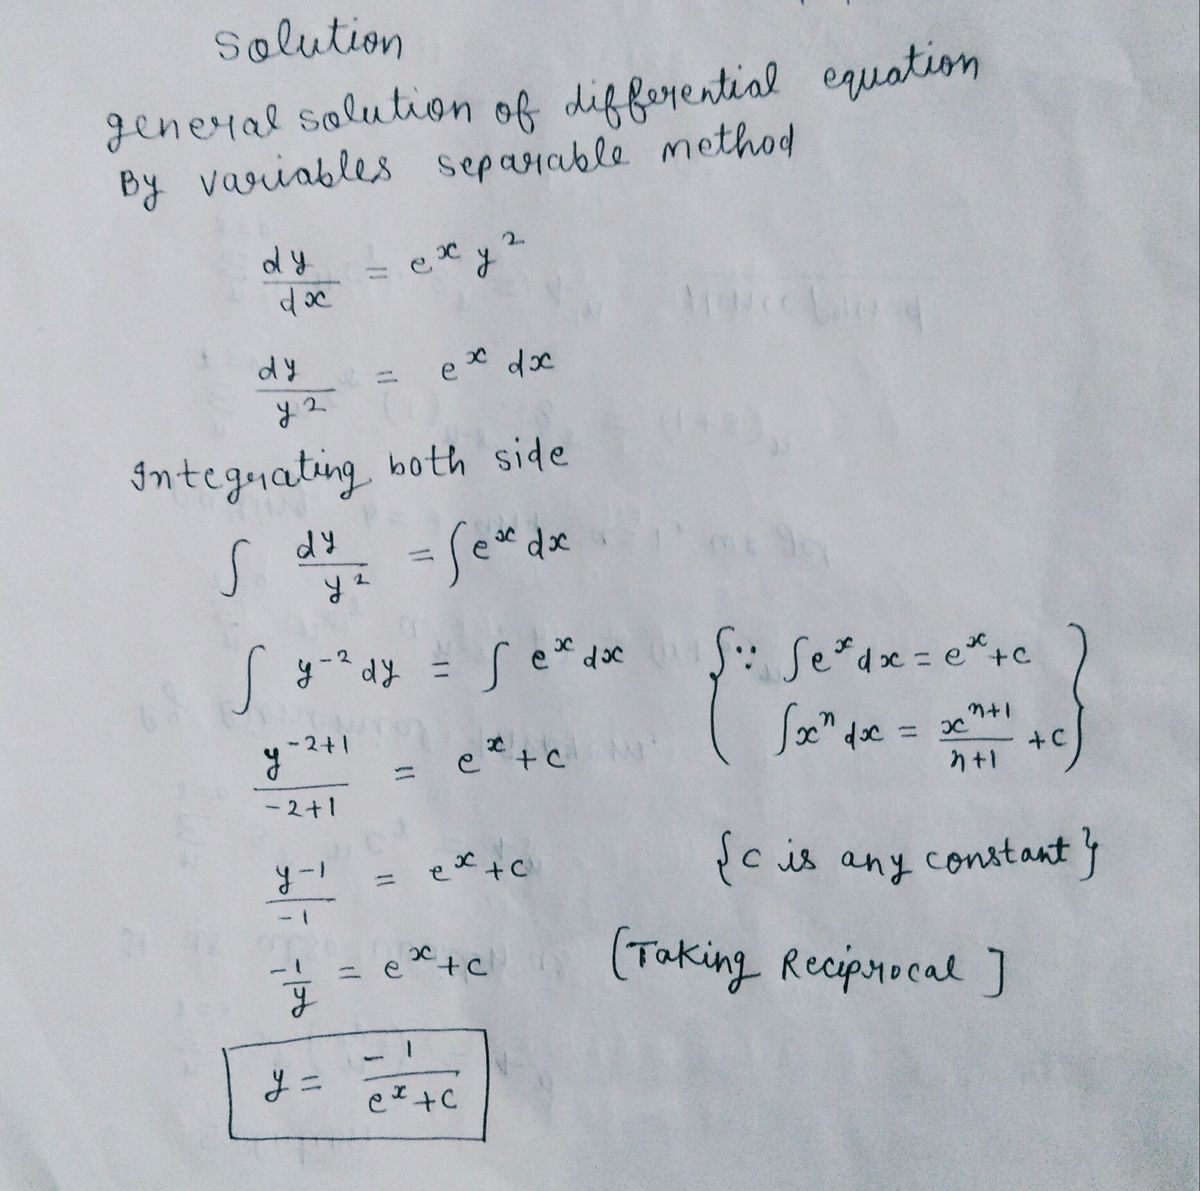 Solution
general solution of differential equation
By variables separable method
dy/dx = e^x y^2
dy/y^2 = e^x dx
Integrating both side
∫ dy/y^2 = ∫e^x dx
∫ y^-2 dy = ∫ e^x dx {∵ ∫e^x dx = e^x + c
y^-2+1/-2+1 = e^x + c ∫x^n dx = x^n+1/n+1 + c}
y^-1/-1 = e^x + c {c is any constant}
-1/y = e^x + c [Taking Reciprocal]
y = -1/e^x + c